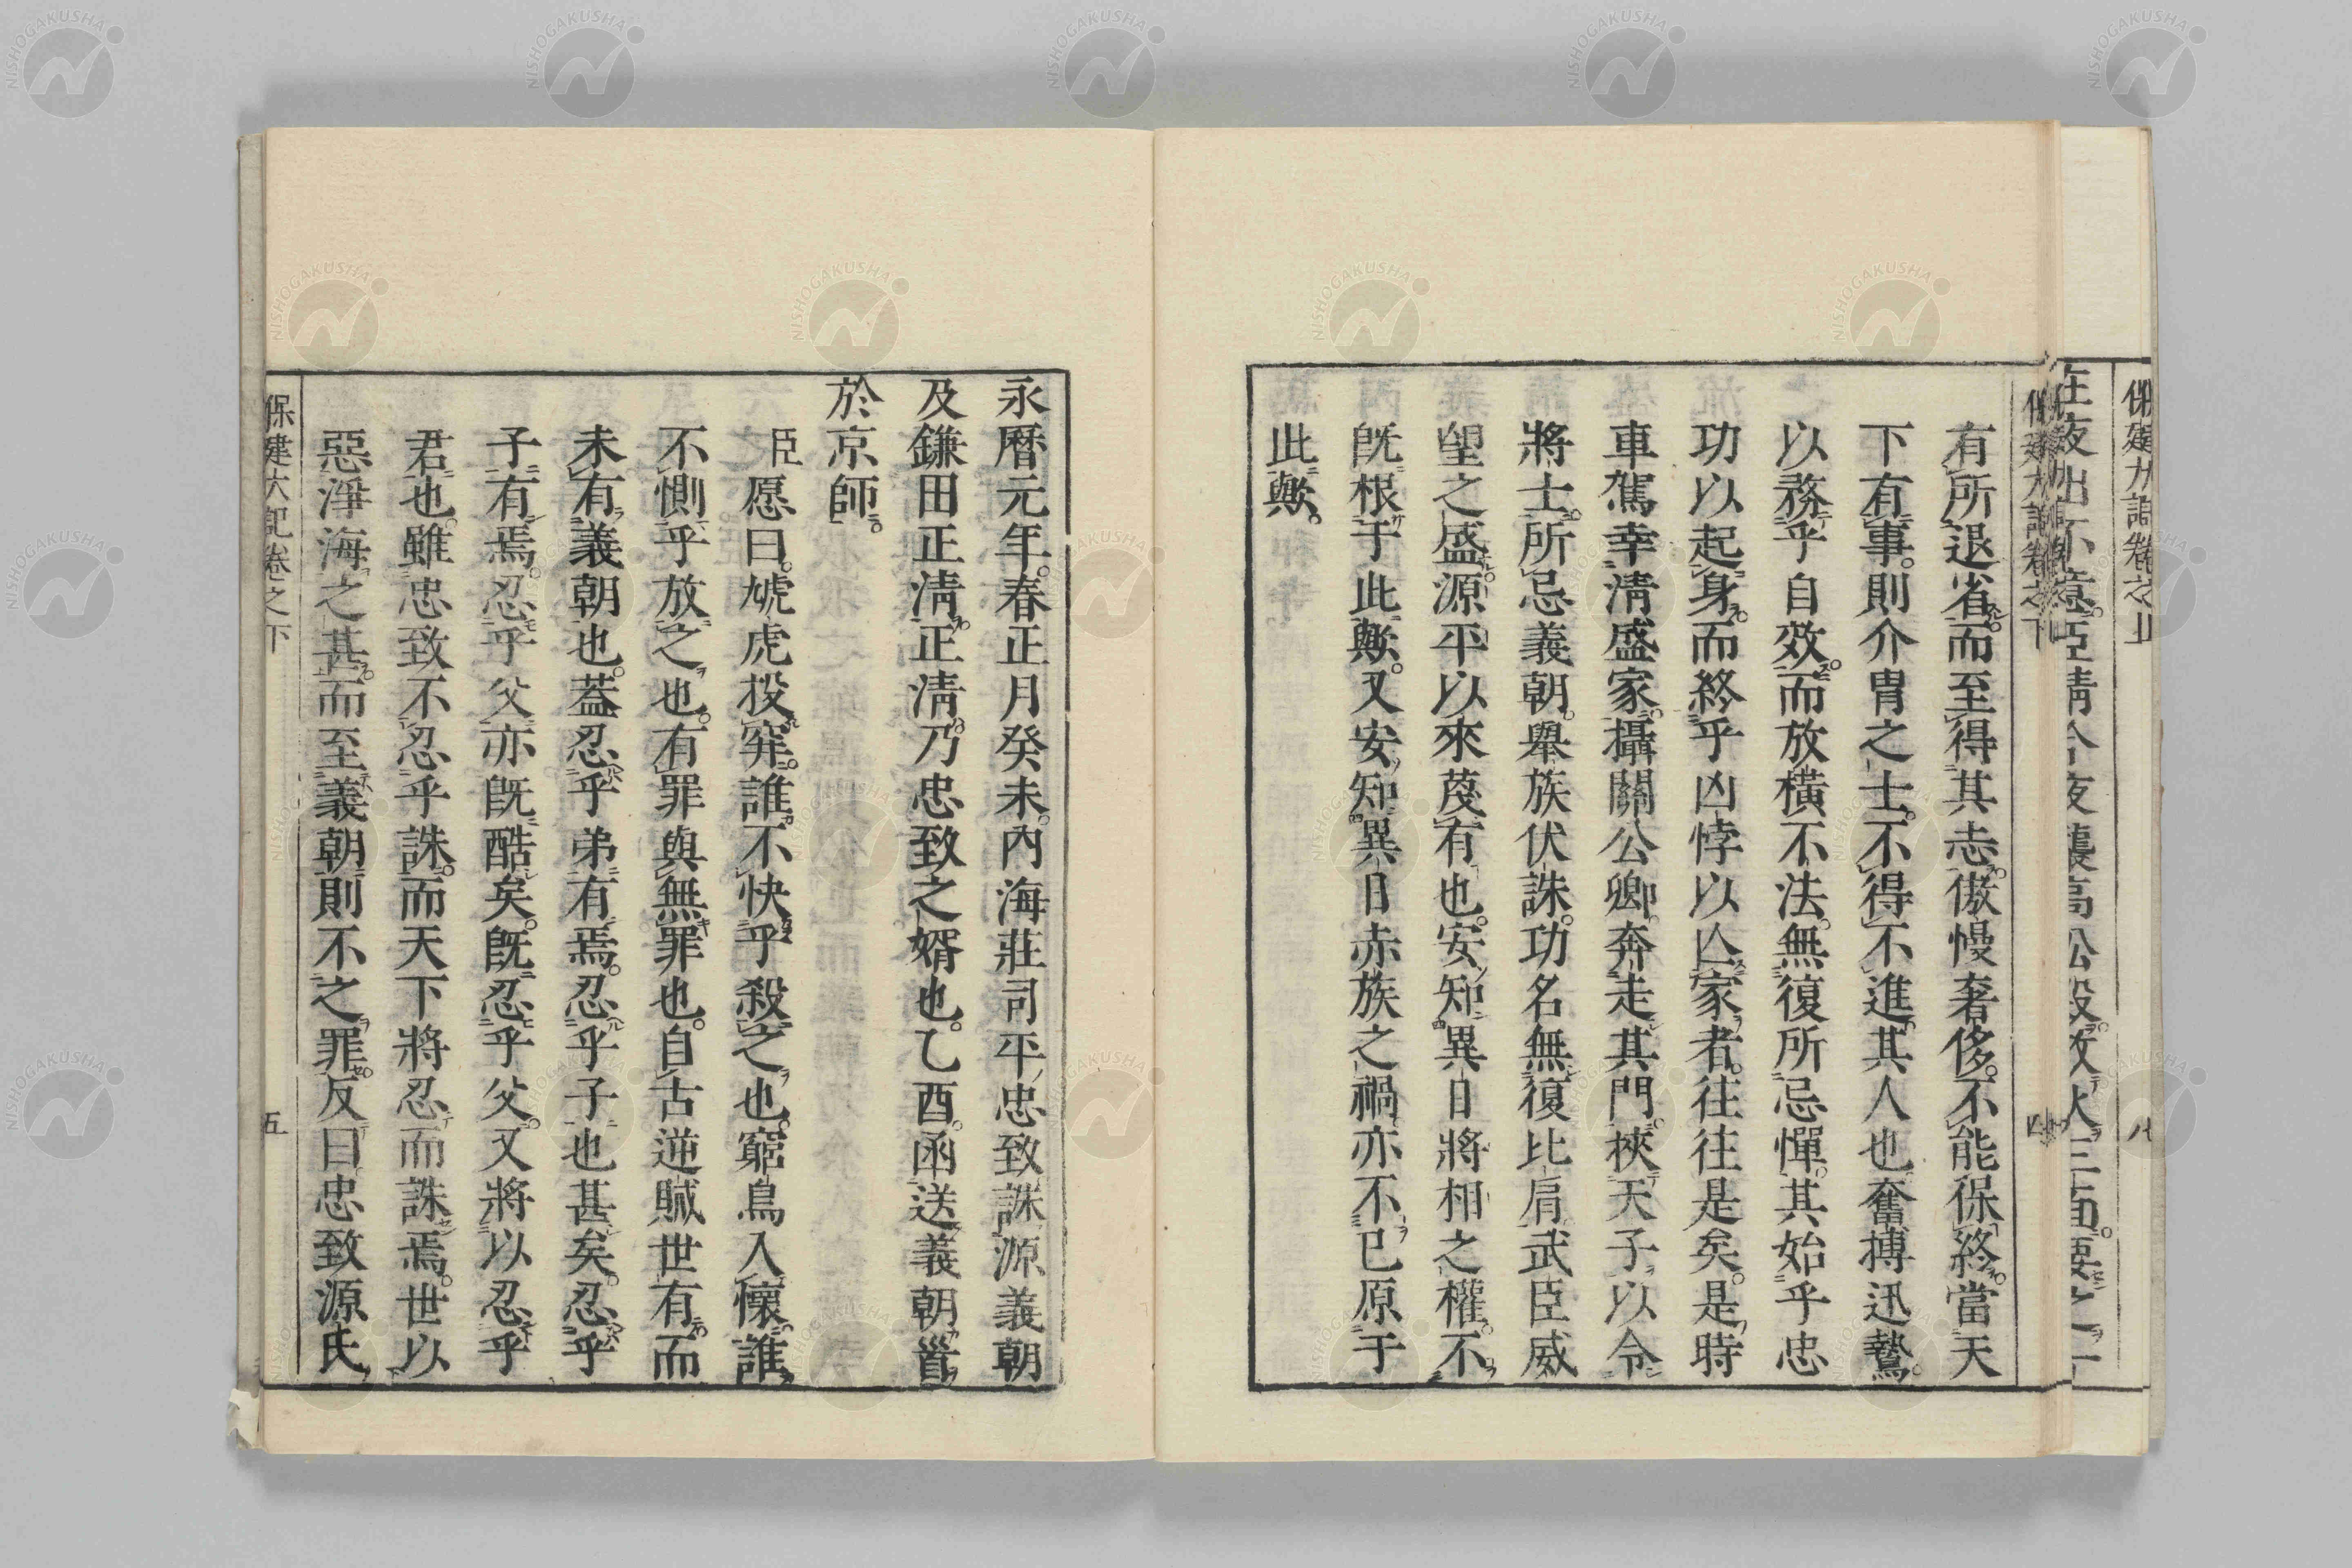 保建大記卷之上
有所退省。而至得其志。傲慢奢侈。不能保終。當天
下有事。則介冑之士。不得不進。其人也奮搏迅鷙。
以務乎自效。而放橫不法。無復所忌憚。其始乎忠
功以起身。而終乎凶悖以亾家者。往往是矣。是時
車駕幸淸盛家。攝關公卿。奔走其門。挾天子以令
將士。所忌義朝。舉族伏誅。功名無復比肩。武臣威
望之盛。源平以來蔑有也。安知異日將相之權。不
旣根于此歟。又安知異日赤族之禍。亦不已原于
此歟。
永曆元年。春正月癸未。內海莊司平忠致誅源義朝
及鎌田正淸。正淸。乃忠致之婿也。乙酉。函送義朝首
於京師。
臣愿曰。虓虎投穽。誰不快乎殺之也。窮鳥入懷。誰
不惻乎放之也。有罪與無罪也。自古逆賊世有。而
未有義朝也。蓋忍乎弟有焉。忍乎子也甚矣。忍乎
子有焉。忍乎父亦旣酷矣。旣忍乎父。又將以忍乎
君也。雖忠致不忍乎誅。而天下將忍而誅焉。世以
惡淨海之甚。而至義朝則不之罪。反曰忠致源氏
保建大記卷之下
五